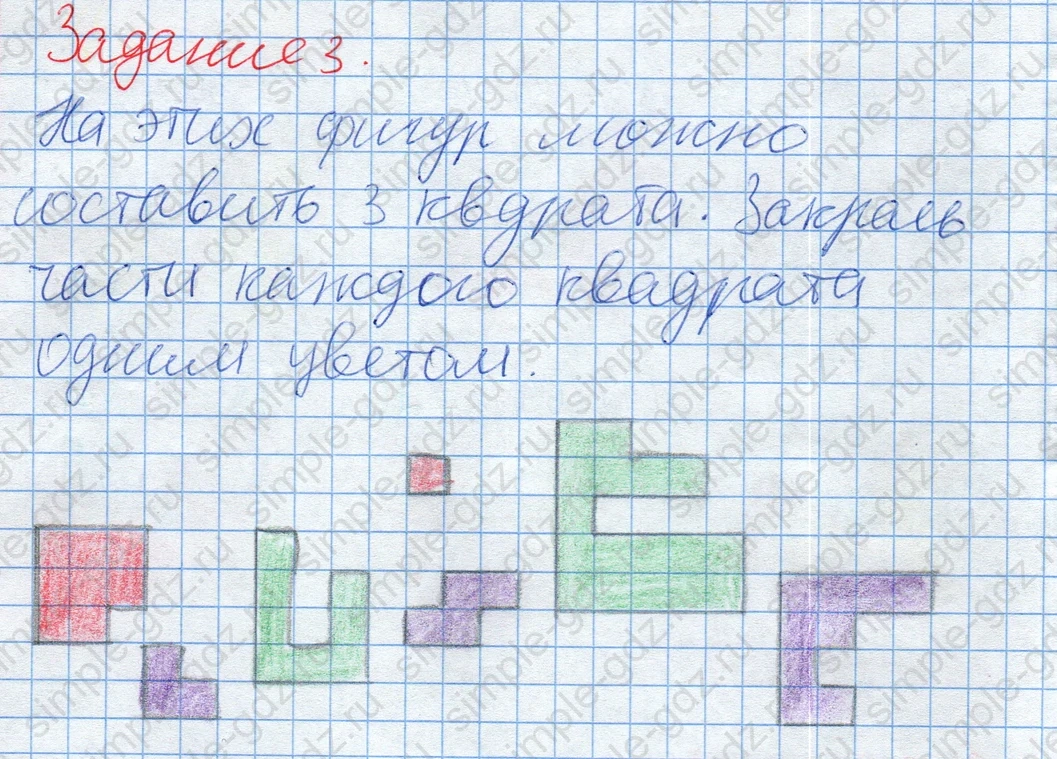 Задание 3.
На этих фигур можно
составить 3 квдрата. Закрась
части каждого квадрата
одним цветом.
simple-gdz.ru